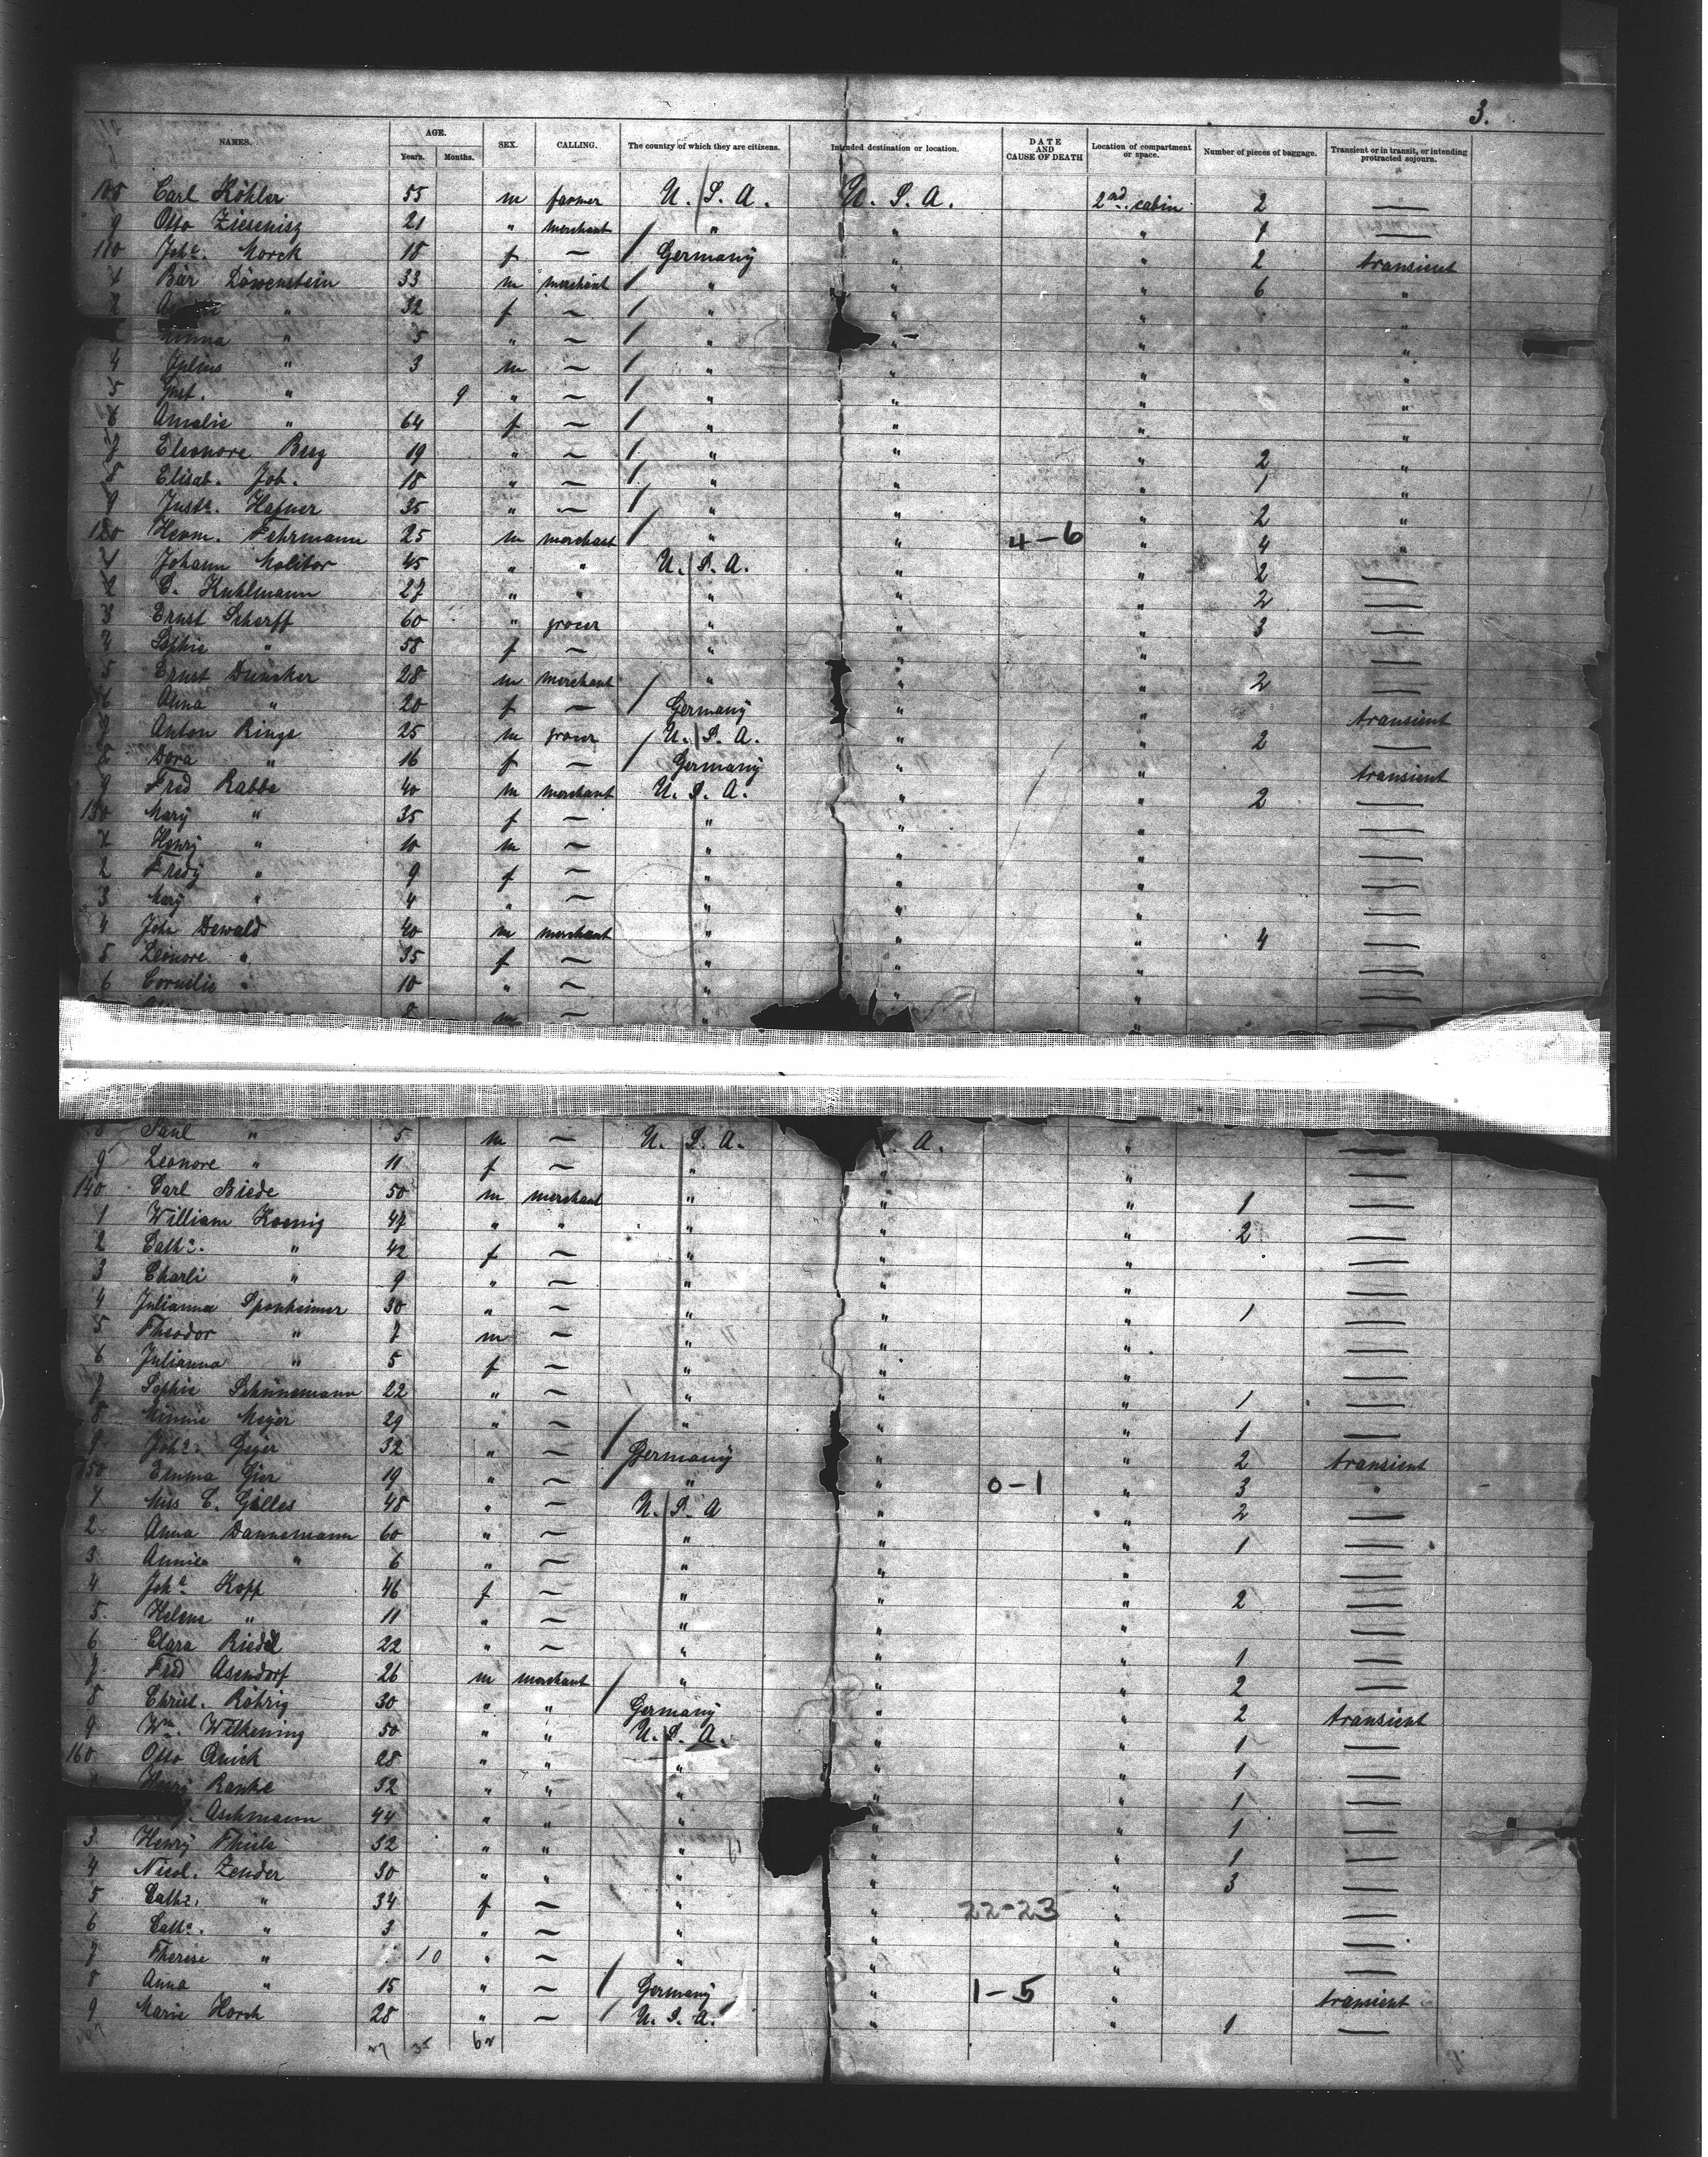 3.
NAMES. AGE. Years. Months. SEX. CALLING. The country of which they are citizens. Intended destination or location. DATE AND CAUSE OF DEATH Location of compartment or space. Number of pieces of baggage. Transient or in transit, or intending protracted sojourn.
108 Carl Köhler 55 m farmer U. S. A. U. S. A. 2nd cabin 2 —
9 Otto Ziesenisz 21 " merchant " " " 1 —
110 Johe. Morck 18 f — Germany " " 2 transient
1 Bär Löwenstein 33 m merchant " " " 6 "
2 " 32 f — " " " "
" 5 " — " " " "
4 Julius " 3 m — " " " "
5 Gust. " 9 " — " " " "
6 Amalie " 64 f — " " " "
7 Eleonore Berg 19 " — " " " 2 "
8 Elisab. Job. 18 " — " " " 1 "
9 Juste. Hafner 35 " — " " " 2 "
120 Herm. Fehrmann 25 m merchant " " 4-6 " 4 "
1 Johann Molitor 45 " " U. S. A. " " 2 —
2 C. Kuhlmann 27 " " " " " 2 —
3 Ernst Scherff 60 " grocer " " " 3 —
4 Sophie " 58 f — " " " —
5 Ernst Duensker 28 m merchant " " " 2 —
6 Anna " 20 f — Germany " " transient
7 Anton Rings 25 m grocer U. S. A. " " 2 —
8 Dora " 16 f — Germany " " transient
9 Fred Rabbe 40 m merchant U. S. A. " " 2 —
130 Mary " 35 f — " " " —
1 Henry " 10 m — " " " —
2 Fredy " 9 f — " " " —
3 Mary " 4 " — " " " —
4 John Dewald 40 m merchant " " " 4 —
5 Leonore " 35 f — " " " —
6 Cornelie " 10 " — " " " —
8 m — " " —
8 Paul " 5 m — U. S. A. A. " —
9 Leonore " 11 f — " " " —
140 Carl Biede 50 m merchant " " " 1 —
1 William Koenig 47 " " " " " 2 —
2 Cathe. " 42 f — " " " —
3 Charli " 9 " — " " " —
4 Julianna Sponheimer 30 " — " " " 1 —
5 Theodor " 7 m — " " " —
6 Julianna " 5 f — " " " —
7 Sophie Schünemann 22 " — " " " 1 —
8 Minnie Meyer 29 " — " " " 1 —
9 Johe. Geyer 32 " — Germany " " 2 transient
150 Emma Gier 19 " — " " 0-1 " 3 "
1 Miss C. Gilles 48 " — U. S. A " " 2 —
2 Anna Dannemann 60 " — " " " 1 —
3 Annie " 6 " — " " " —
4 Johe Kopp 46 f — " " " 2 —
5. Helene " 11 " — " " " —
6 Clara Riedel 22 " — " " " 1 —
7 Fred Asendorf 26 m merchant " " " 2 —
8 Christ. Röhrig 30 " " Germany " " 2 transient
9 Wm. Wilkening 50 " " U. S. A. " " 1 —
160 Otto Quick 28 " " " " " 1 —
Henry Ranke 32 " " " " " 1 —
Aschmann 44 " " " " " 1 —
3 Henry Thiele 32 " " " " " 1 —
4 Nicol. Zender 30 " " " " " 3 —
5 Cathe. " 34 f — " " 22-23 " —
6 Cathe. " 3 " — " " " —
7 Therese " 10 " — " " " —
8 Anna " 15 " — Germany " 1-5 " transient
9 Marie Horch 28 " — U. S. A. " " 1 —
27 35 62